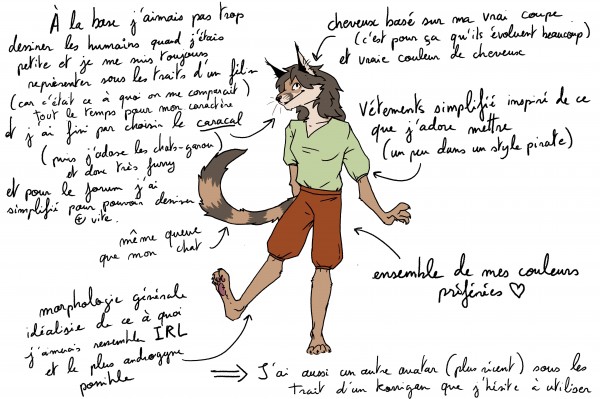 À la base j'aimais pas trop
dessiner les humains quand j'étais
petite et je me suis toujours
représenter sous les traits d'un félin
(car c'était ce à quoi on me comparait)
tout le temps pour mon caractère
et j'ai fini par choisir le caracal
(puis j'adore les chats-garou
et donc très furry
et pour le forum j'ai
simplifié pour pouvoir dessiner
⊕ vite.
cheveux basé sur ma vrai coupe
(c'est pour ça qu'ils évoluent beaucoup)
et vraie couleur de cheveux
Vêtements simplifié inspiré de ce
que j'adore mettre
(un peu dans un style pirate)
même queue
que mon chat
ensemble de mes couleurs
préférées ♡
morphologie générale
idéalisie de ce à quoi
j'aimerais ressembler IRL
et le plus androgyne
possible
⇒ J'ai aussi un autre avatar (plus récent) sous les
trait d'un korrigan que j'hésite à utiliser